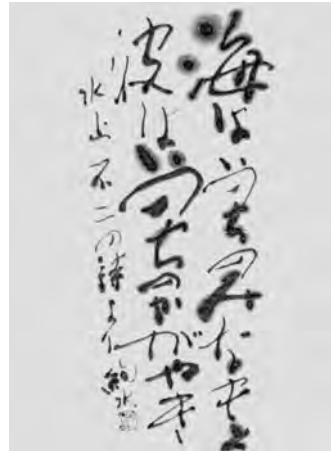 海はいのちのみなもと
波はいのちのかがやき
水山不二の詩より 絢水